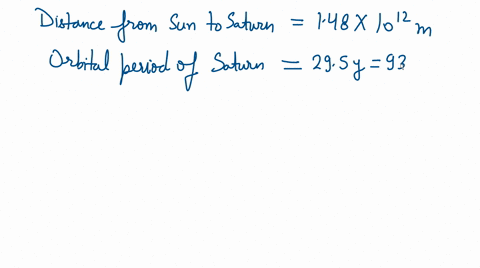 Distance from Sun to Saturn = 1.48 X 10¹² m
Orbital period of Saturn = 29.5 y = 93